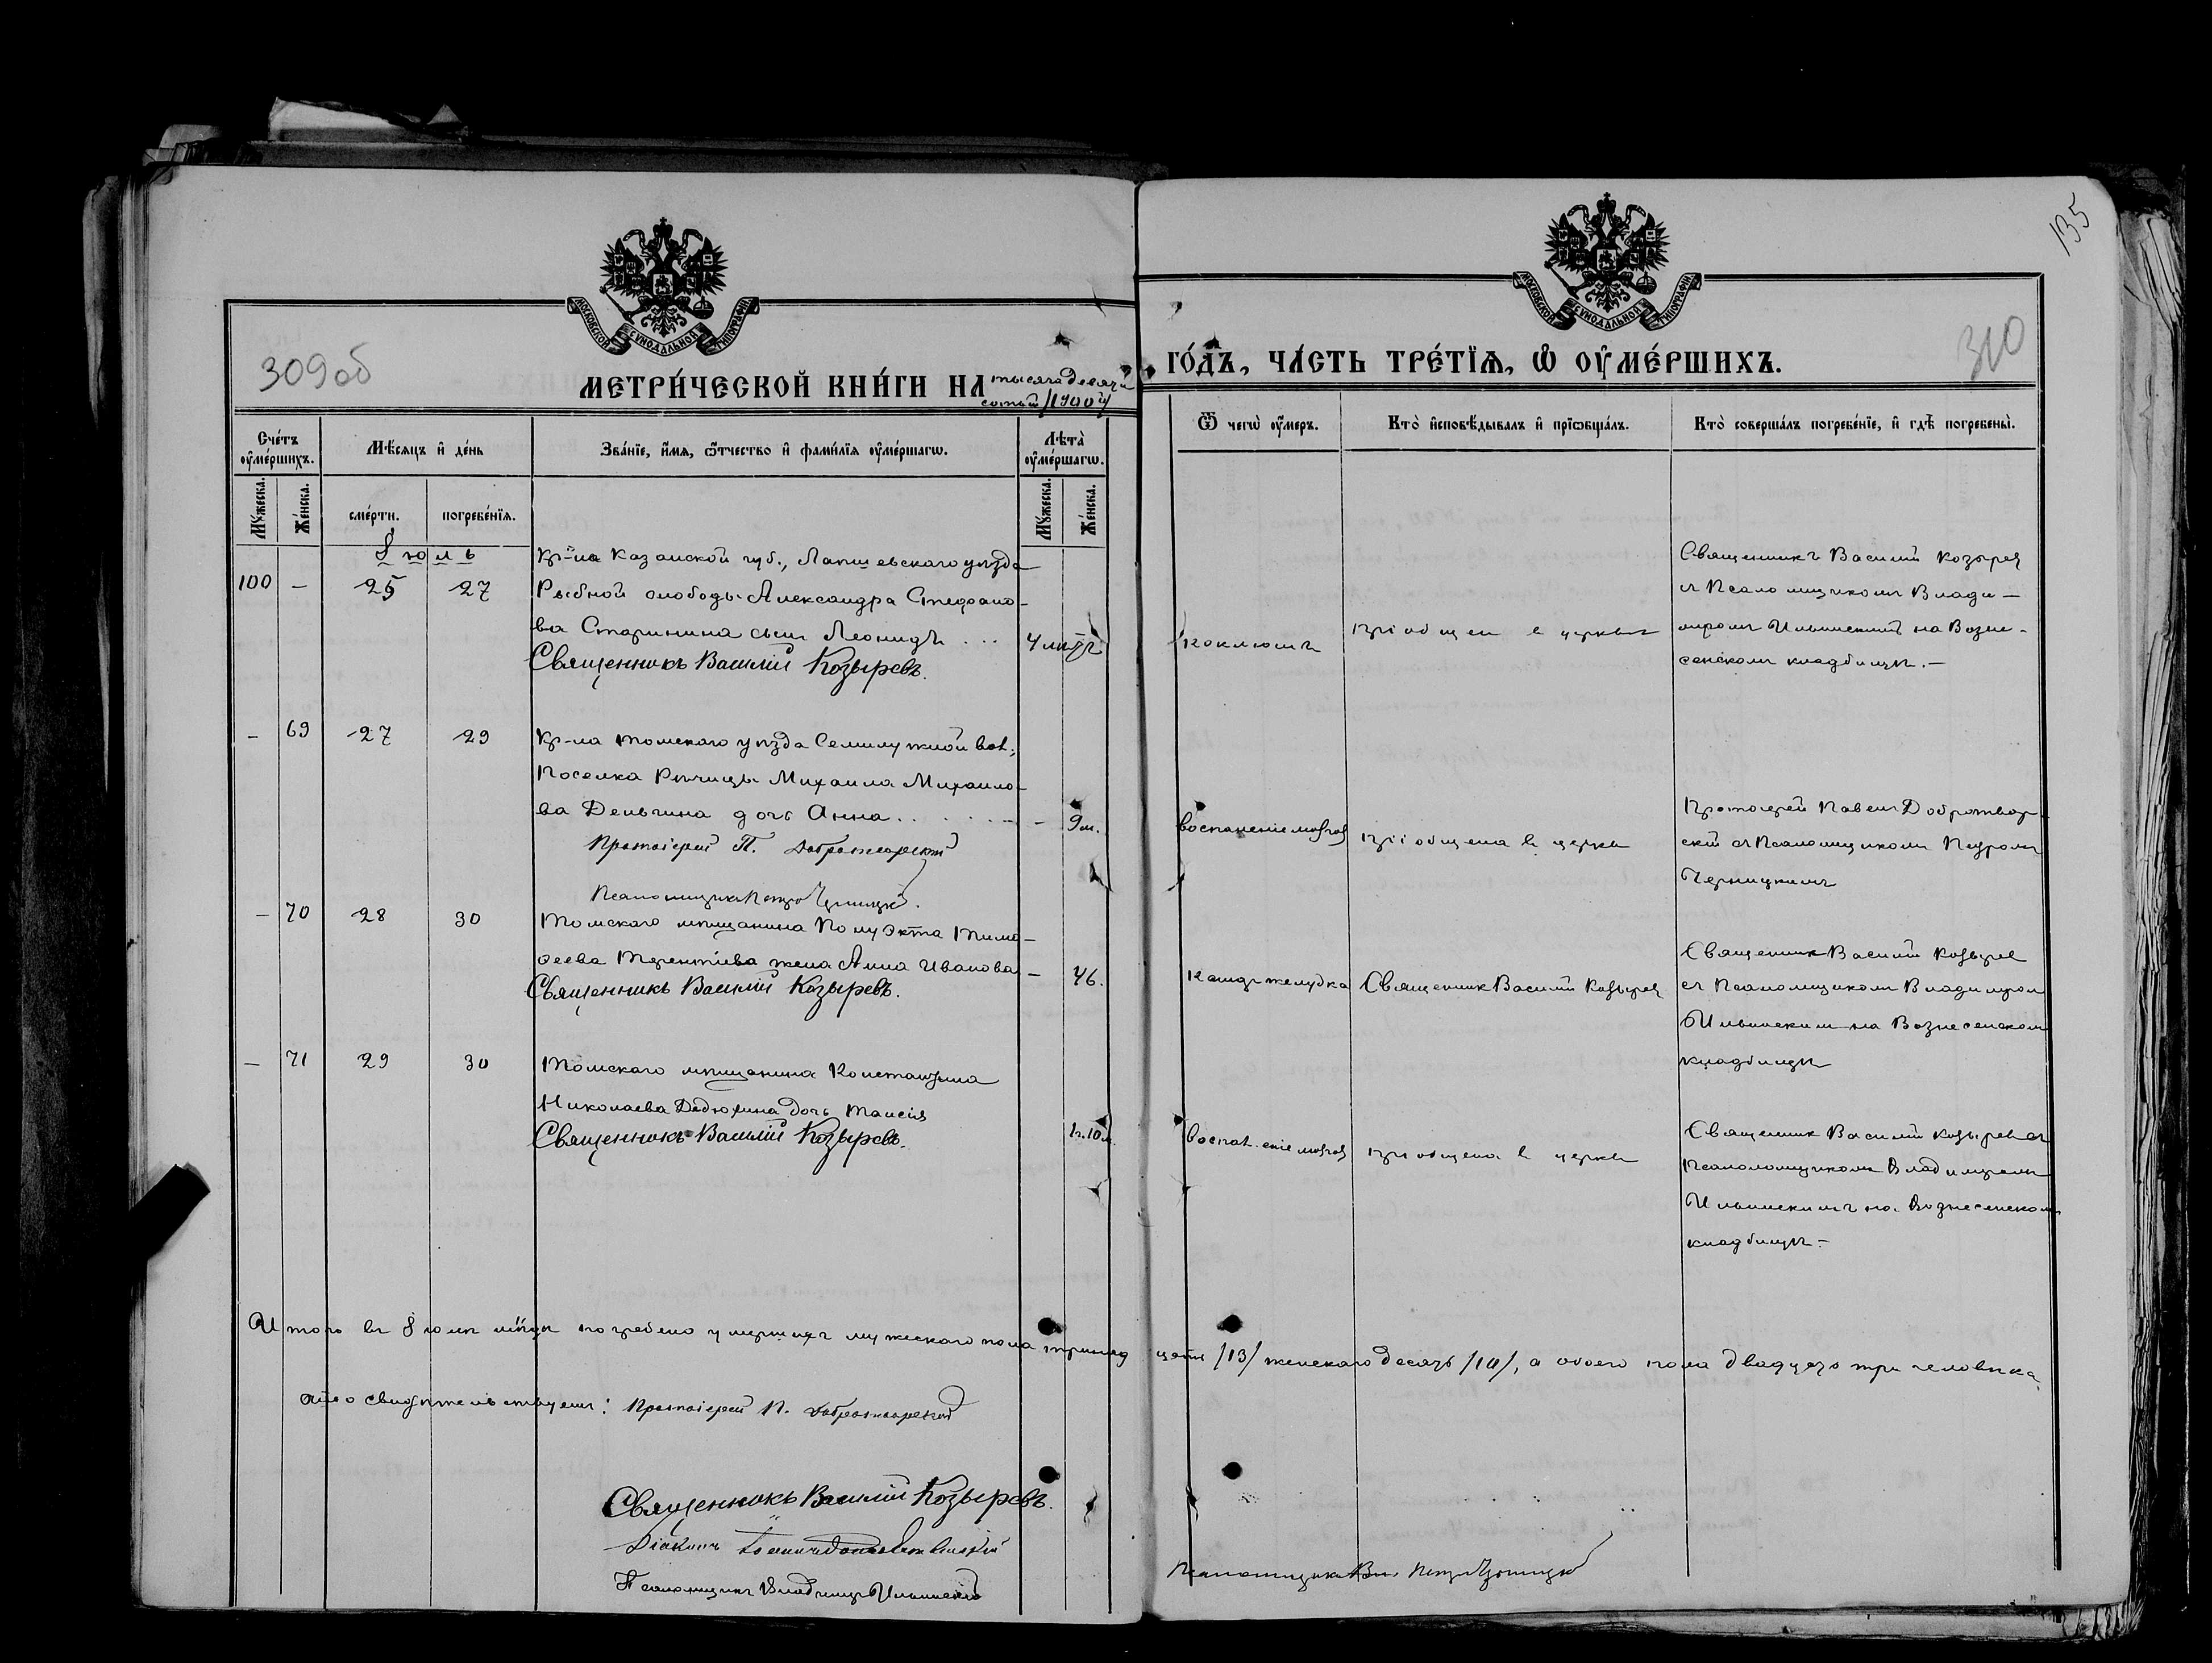 135
МОСКОВСКОЙ СУНОДАЛЬНОЙ ТИПОГРАФІИ
МОСКОВСКОЙ СУНОДАЛЬНОЙ ТИПОГРАФІИ
309об
310
МЕТРИ́ЧЕСКОЙ КНИ́ГИ НА тысяча девяти
сотый /1900й/
ГО́ДЪ, ЧА́СТЬ ТРЕ́ТЇѦ, Ѡ҆ ОУ҆МЕ́РШИХЪ.
Сче́тъ оу҆ме́ршихъ.
Мꙋ́жеска.
Же́нска.
Мѣ́сяцъ и҆ де́нь
сме́рти.
погребе́нїѧ.
Зва́нїе, и҆́мѧ, ѻ҆́тчество и҆ фами́лїѧ оу҆ме́ршагѡ.
Лѣ́та оу҆ме́ршагѡ.
Мꙋ́жеска.
Же́нска.
Ѿ чегѡ̀ оу҆́меръ.
Кто̀ и҆сповѣ́дывалъ и҆ прїѡбща́лъ.
Кто̀ соверша́лъ погребе́нїе, и҆ гдѣ̀ погребены̀.
Іюль
100 — 25 27
Кр-на Казанской губ., Лаишевскаго уѣзда
Рыбной слободы Александра Стефано-
ва Старинина сынъ Леонидъ . . .
Священникъ Василій Козыревъ.
коклюшъ
пріобщен в церкви
Священникъ Василій Козырев
съ Псаломщикомъ Влади-
миромъ Ильинскимъ на Возне-
сенскомъ кладбищѣ.—
— 69 27 29
Кр-на Томскаго уѣзда Семилужной вол.,
Поселка Рѣчицы Михаила Михайло-
ва Деньгина дочь Анна . . . . .
— 9 м.
Протоіерей П. Добротворскій
Псаломщикъ Петръ Черницкій.
воспаленіе мозгов
пріобщена в церкви
Протоіерей Павелъ Добротвор-
скій съ Псаломщикомъ Петромъ
Черницкимъ
— 70 28 30
Томскаго мѣщанина Полуэкта Тимо-
ѳеева Терентіева жена Анна Иванова
— 46.
Священникъ Василій Козыревъ.
желудка
Священник Василій Козырев
Священник Василій Козырев
съ Псаломщиком Владимиром
Ильинским на Вознесенском
кладбищѣ
— 71 29 30
Томскаго мѣщанина Константина
Николаева Дедюхина дочь Таисія
1 г. 10 м.
Священникъ Василій Козыревъ.
воспаленіе мозгов
пріобщена в церкви
Священник Василій Козырев съ
Псаломщиком Владимиром
Ильинскимъ на Вознесенском
кладбищѣ.—
Итого въ Іюлѣ мѣсяцѣ погребено умершихъ мужескаго пола тринад цать /13/ женскаго десять /10/, а обоего пола двадцать три человѣка.
свидѣтельствуемъ: Протоіерей П. Добротворскій
Священникъ Василій Козыревъ.
Діаконъ
Псаломщикъ Владимиръ Ильинскій
Псаломщикъ Петръ Черницкій